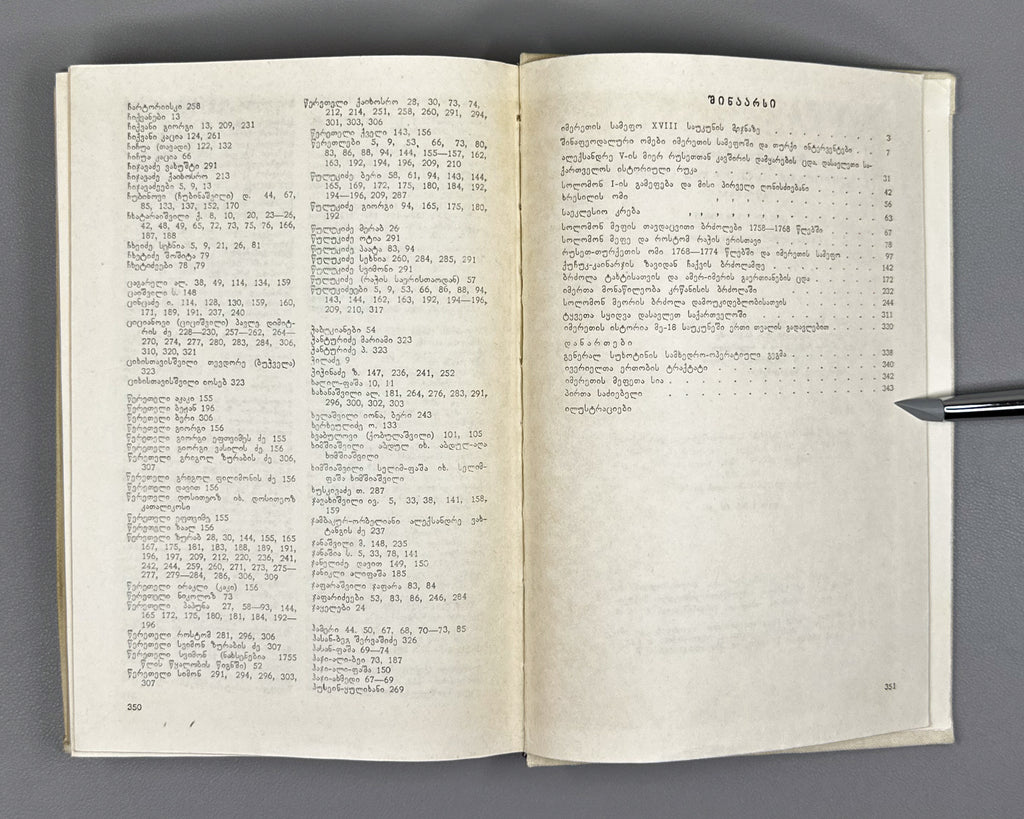 ჩარტორიისკი 258
ჩიქვანები 13
ჩიქვანი გიორგი 13, 209, 231
ჩიქვანი კაცია 124, 261
ჩიჩუა (თავადი) 122, 132
ჩიჩუა კაცია 66
ჩიჯავაძე ვახუშტი 291
ჩიჯავაძე ქაიხოსრო 213
ჩიჯავაძეები 5, 9, 13
ჩუბინოვი (ჩუბინაშვილი) დ. 44, 67,
85, 133, 137, 152, 170
ჩხატარაიშვილი ქ. 8, 10, 20, 23—26,
42, 48, 49, 65, 72, 73, 75, 76, 166,
187, 188
ჩხეიძე სეხნია 5, 9, 21, 26, 81
ჩხეტიძე შოშიტა 79
ჩხეტიძეები 78 ,79
ცაგარელი ალ. 38, 49, 114, 134, 159
ცაიშვილი ს. 148
ცინცაძე ი. 114, 128, 130, 159, 160,
171, 189, 191, 237, 240
ციციანოვი (ციციშვილი) პავლე დიმიტ-
რის ძე 228—230, 257—262, 264—
270, 274, 277, 280, 283, 284, 306,
310, 320, 321
ციხისთავისშვილი თევდორე (ბუჭველა)
323
ციხისთავისშვილი იოსებ 323
წერეთელი აკაკი 155
წერეთელი ბეჟან 196
წერეთელი ბერი 306
წერეთელი გიორგი 156
წერეთელი გიორგი ეფთვიმეს ძე 155
წერეთელი გიორგი ვასილის ძე 156
წერეთელი გრიგოლ ზურაბის ძე 306,
307
წერეთელი გრიგოლ ფილიმონის ძე 156
წერეთელი დავით 156
წერეთელი დოსითეოზ იხ. დოსითეოზ
კათალიკოსი
წერეთელი ეფთვიმე 155
წერეთელი ზაალ 156
წერეთელი ზურაბ 28, 30, 144, 155, 165
167, 175, 181, 183, 188, 189, 191,
196, 197, 209, 212, 220, 236, 241,
242, 244, 259, 260, 271, 273, 275—
277, 279—284, 286, 306, 309
წერეთელი ირაკლი (კაკი) 156
წერეთელი ნიკოლოზ 73
წერეთელი პაპუნა 27, 58—93, 144,
165 172, 175, 180, 181, 184, 192—
196
წერეთელი როსტომ 281, 296, 306
წერეთელი სვიმონ ზურაბის ძე 307
წერეთელი სვიმონ (ნახსენებია 1755
წლის წყალობის წიგნში) 52
წერეთელი სიმონ 291, 294, 296, 303,
307
350
წერეთელი ქაიხოსრო 28, 30, 73, 74,
212, 214, 251, 258, 260, 291, 294,
301, 303, 306
წერეთელი ქველი 143, 156
წერეთლები 5, 9, 53, 66, 73, 80,
83, 86, 88, 94, 144, 155—157, 162,
163, 192, 194, 196, 209, 210
წულუკიძე ბერი 58, 61, 94, 143, 144,
165, 169, 172, 175, 180, 184, 192,
194—196, 209, 287
წულუკიძე გიორგი 94, 165, 175, 180,
192
წულუკიძე მერაბ 26
წულუკიძე ოტია 291
წულუკიძე პაატა 83, 94
წულუკიძე სეხნია 260, 284, 285, 291
წულუკიძე სვიმონი 291
წულუკიძე (რაჭის საერისთაოდან) 57
წულუკიძეები 5, 9, 53, 66, 86, 88, 94,
143, 144, 162, 163, 192, 194—196,
209, 210, 317
ჭაბუკიანები 54
ჭანტურიძე მარიამი 323
ჭანტურიძე პ. 323
ჭილაძე 9
ჭიჭინაძე ზ. 147, 236, 241, 252
ხალილ-ფაშა 10, 11
ხახანაშვილი ალ. 181, 264, 276, 283, 291,
296, 300, 302, 303
ხელაშვილი იონა, ბერი 243
ხერხეულიძე ო. 133
ხვაბულოვი (ქობულაშვილი) 101, 105
ხიმშიაშვილი აბდულ იხ. აბდულ-აღა
ხიმშიაშვილი
ხიმშიაშვილი სელიმ-ფაშა იხ. სელიმ-
ფაშა ხიმშიაშვილი
ხუსკივაძე თ. 287
ჯავახიშვილი ივ. 5, 33, 38, 141, 158,
159
ჯამბაკურ-ორბელიანი ალექსანდრე ვახ-
ტანგის ძე 237
ჯანაშვილი მ. 148, 235
ჯანაშია ს. 5, 33, 78, 141
ჯანელიძე დავით 149, 150
ჯანიკლი ალიფაშა 185
ჯაფარაშვილი ჯაფარა 83, 84
ჯაფარიძეები 53, 83, 86, 246, 284
ჯაყელები 24
ჰამერი 44. 50, 67, 68, 70—73, 85
ჰასან-ბეგ შერვაშიძე 326
ჰასან-ფაშა 69—74
ჰაჯი-ალი-ბეი 73, 187
ჰაჯი-ალი-ფაშა 150
ჰაჯი-ახმედი 67—69
ჰუსეინ-ყულიხანი 269
შინაარსი
იმერეთის სამეფო XVIII საუკუნის მიჯნაზე . . . . . . 3
შინაფეოდალური ომები იმერეთის სამეფოში და თურქი ინტერვენტები . . 7
ალექსანდრე V-ის მიერ რუსეთთან კავშირის დამყარების ცდა დასავლეთ სა-
ქართველოს ისტორიული რუკა . . . . . . . . 31
სოლომონ I-ის გამეფება და მისი პირველი ღონისძიებანი 42
ხრესილის ომი 56
საეკლესიო კრება 63
სოლომონ მეფის თავდაცვითი ბრძოლები 1758—1768 წლებში 67
სოლომონ მეფე და როსტომ რაჭის ერისთავი . . . . . 78
რუსეთ-თურქეთის ომი 1768—1774 წლებში და იმერეთის სამეფო . . 97
ქუჩუკ-კაინარჯის ზავიდან ჩაქვის ბრძოლამდე . . . . . 142
ბრძოლა ტახტისათვის და ამერ-იმერის გაერთიანების ცდა . . . 172
იმერთა მონაწილეობა კრწანისის ბრძოლაში . . . . . 232
სოლომონ მეორის ბრძოლა დამოუკიდებლობისათვის . . . . 244
ტყვეთა სყიდვა დასავლეთ საქართველოში . . . . . 311
იმერეთის ისტორია მე-18 საუკუნეში ერთი თვალის გადავლებით . . 320
დანართები
გენერალ სუხოტინის სამხედრო-ოპერატიული გეგმა . . . . . 338
ივერიელთა ერთობის ტრაქტატი . . . . . . 340
იმერეთის მეფეთა სია . . . . . . . 342
პირთა საძიებელი . . . . . . . 343
ილუსტრაციები
351